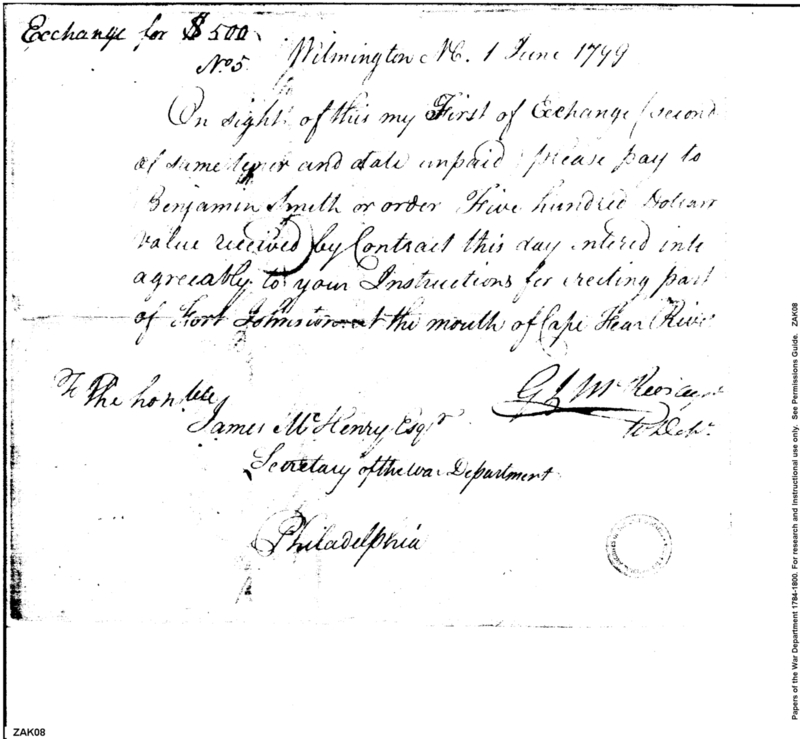 Exchange for $500
No 5. Wilmington NC. 1 June 1799
On sight of this my First of Exchange (second
of same tenor and date unpaid) please pay to
Benjamin Smith or order Five hundred Dollars
value received by Contract this day entered into
agreeably to your Instructions for erecting part
of Fort Johnston at the mouth of Cape Fear River
G J Mc
To The honble
James McHenry Esqr
Secretary of the War Department
Philadelphia
ZAK08
Papers of the War Department 1784-1800. For research and instructional use only. See Permissions Guide. ZAK08